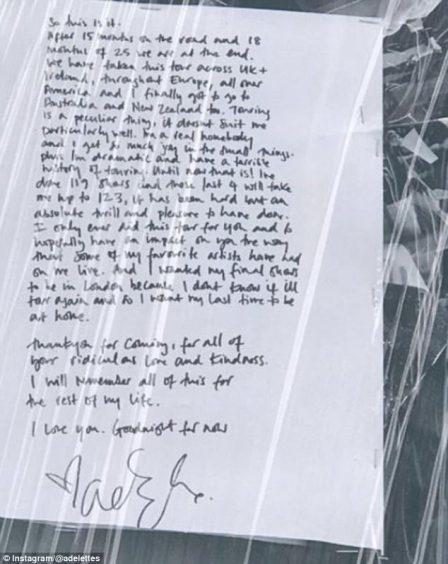 So this is it.
After 15 months on the road and 18
months of 25 we are at the end.
We have taken this tour across UK +
Ireland, throughout Europe, all over
America and I finally got to go to
Australia and New Zealand too. Touring
is a peculiar thing, it doesnt suit me
particularly well. Im a real homebody
and I get so much joy in the small things.
plus Im dramatic and have a terrible
history of touring. Until now that is! Ive
done 119 shows and these last 4 will take
me up to 123, it has been hard but an
absolute thrill and pleasure to have done.
I only ever did this tour for you and to
hopefully have an impact on you the way
that some of my favourite artists have had
on me live. And I wanted my final shows
to be in London because I dont know if ill
tour again and so I want my last time to be
at home.
Thankyou for coming, for all of
your ridiculous love and kindness.
I will remember all of this for
the rest of my life.
I love you. Goodnight for now
Adele
© Instagram/@adelettes